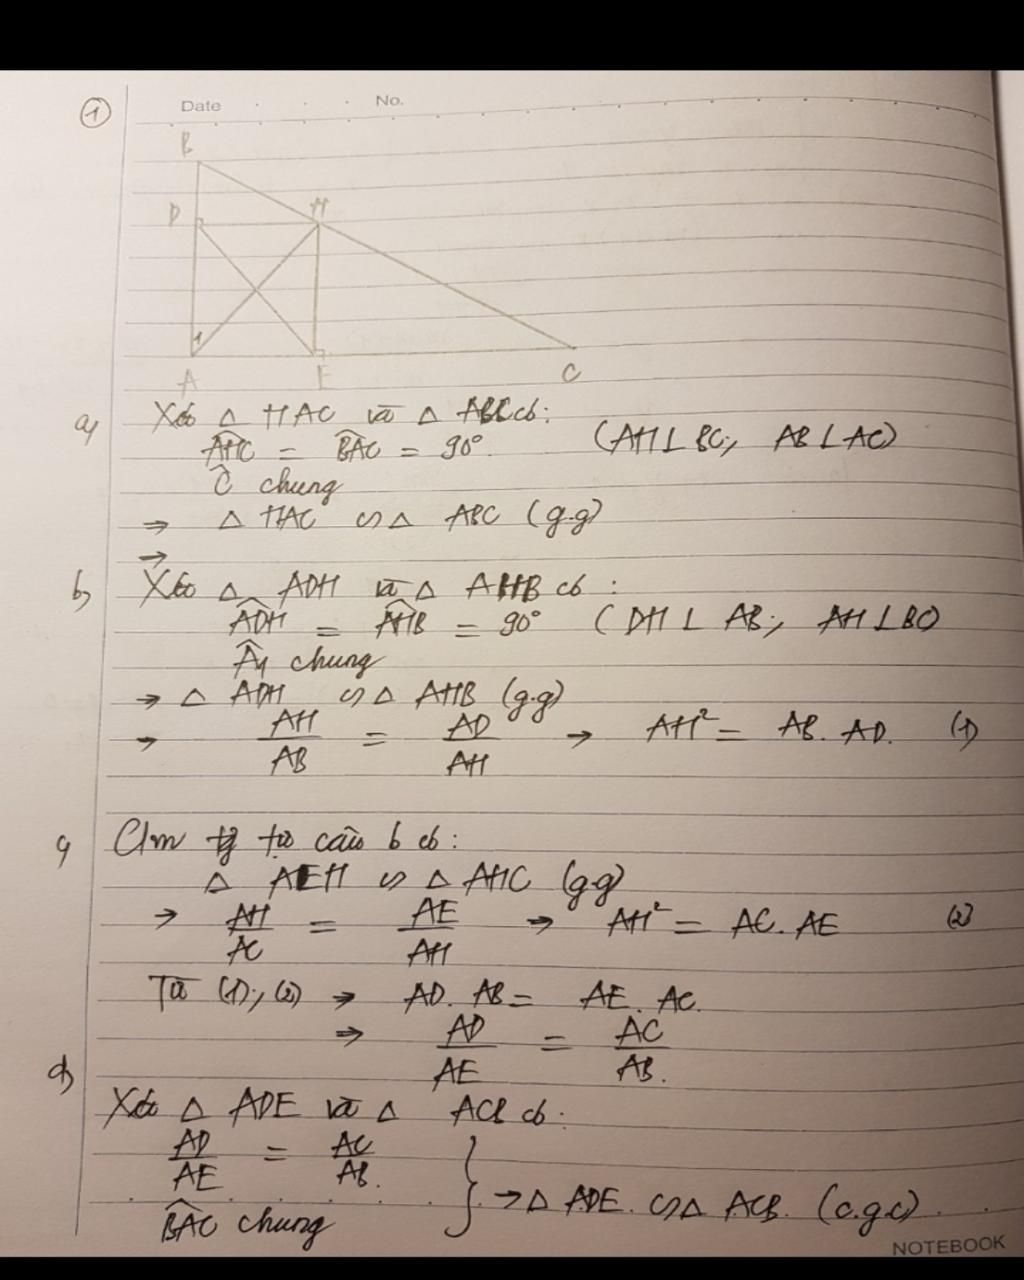 ①
Date No.
B
D H
1
A E C
a) Xét △ HAC và △ ABC có:
A͡HC = B͡AC = 90° (AH⊥BC; AB⊥AC)
Ĉ chung
⇒ △ HAC ∽ △ ABC (g.g)
⇒
b) Xét △ ADH và △ AHB có :
A͡DH = A͡HB = 90° (DH ⊥ AB; AH ⊥ BC)
Â₁ chung
⇒ △ ADH ∽ △ AHB (g.g)
⇒ AH/AB = AD/AH ⇒ AH² = AB. AD. (1)
c) Cm tg tự câu b có:
△ AEH ∽ △ AHC (g.g)
⇒ AH/AC = AE/AH ⇒ AH² = AC. AE (2)
Từ (1); (2) ⇒ AD. AB = AE. AC.
⇒ AD/AE = AC/AB.
d)
Xét △ ADE và △ ACB có:
AD/AE = AC/AB.
B͡AC chung } ⇒ △ ADE. ∽ △ ACB. (c.g.c)
NOTEBOOK